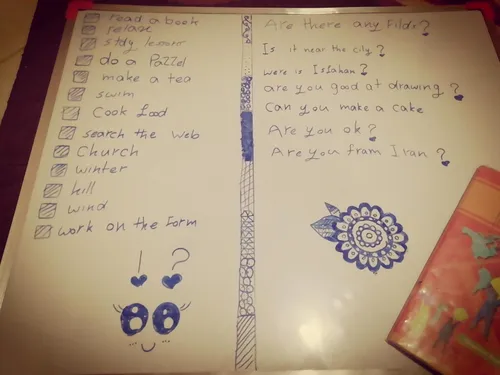 read a book
relaxe
stdy lesson
do a Pazzel
make a tea
swim
Cook food
search the web
Church
winter
hill
wind
work on the form
! ?
Are there any Fild?
Is it near the city?
were is Isfahan?
are you good at drawing?
Can you make a cake
Are you ok?
Are you fram Iran?